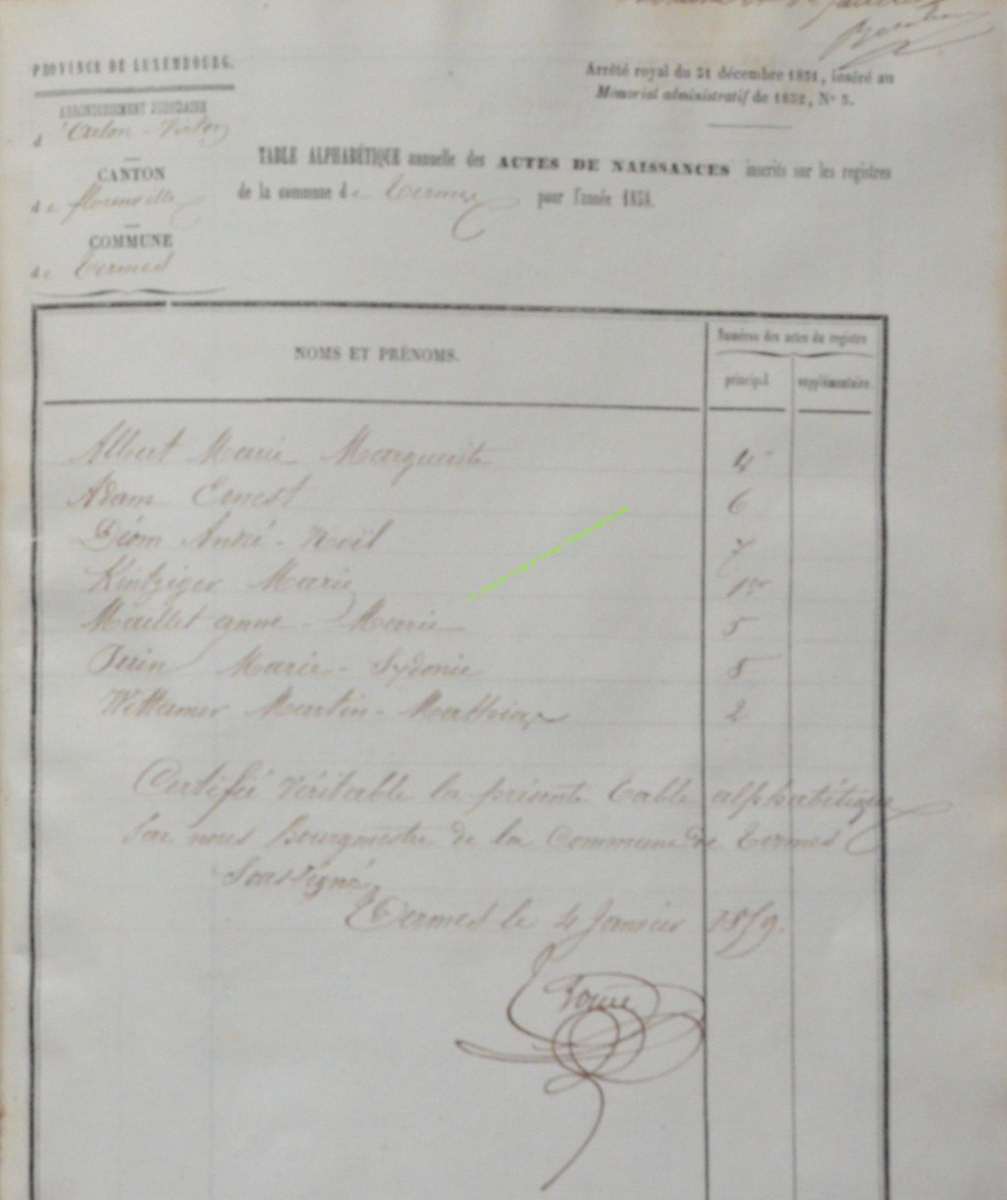 PROVINCE DE LUXEMBOURG.
ARRONDISSEMENT JUDICIAIRE
d'Arlon - Virton
CANTON
de florenville
COMMUNE
de Termes
Arrêté royal du 31 décembre 1851, inséré au
Mémorial administratif de 1852, N° 3.
TABLE ALPHABÉTIQUE annuelle des ACTES DE NAISSANCES inscrits sur les registres
de la commune de Termes pour l'année 1858.
NOMS ET PRÉNOMS.
Numéros des actes du registre
principal
supplémentaire.
Albert Marie Marguerite 4
Adam Ernest 6
Diom André - Noël 7
Kintziger Marie 1er
Maillet anne - Marie 5
Marie - Sydonie 8
Wittamer Martin - Mathias 2
Certifié véritable la présente table alphabétique
Par nous Bourgmestre de la Commune de Termes
Soussigné
Termes le 4 Janvier 1859.